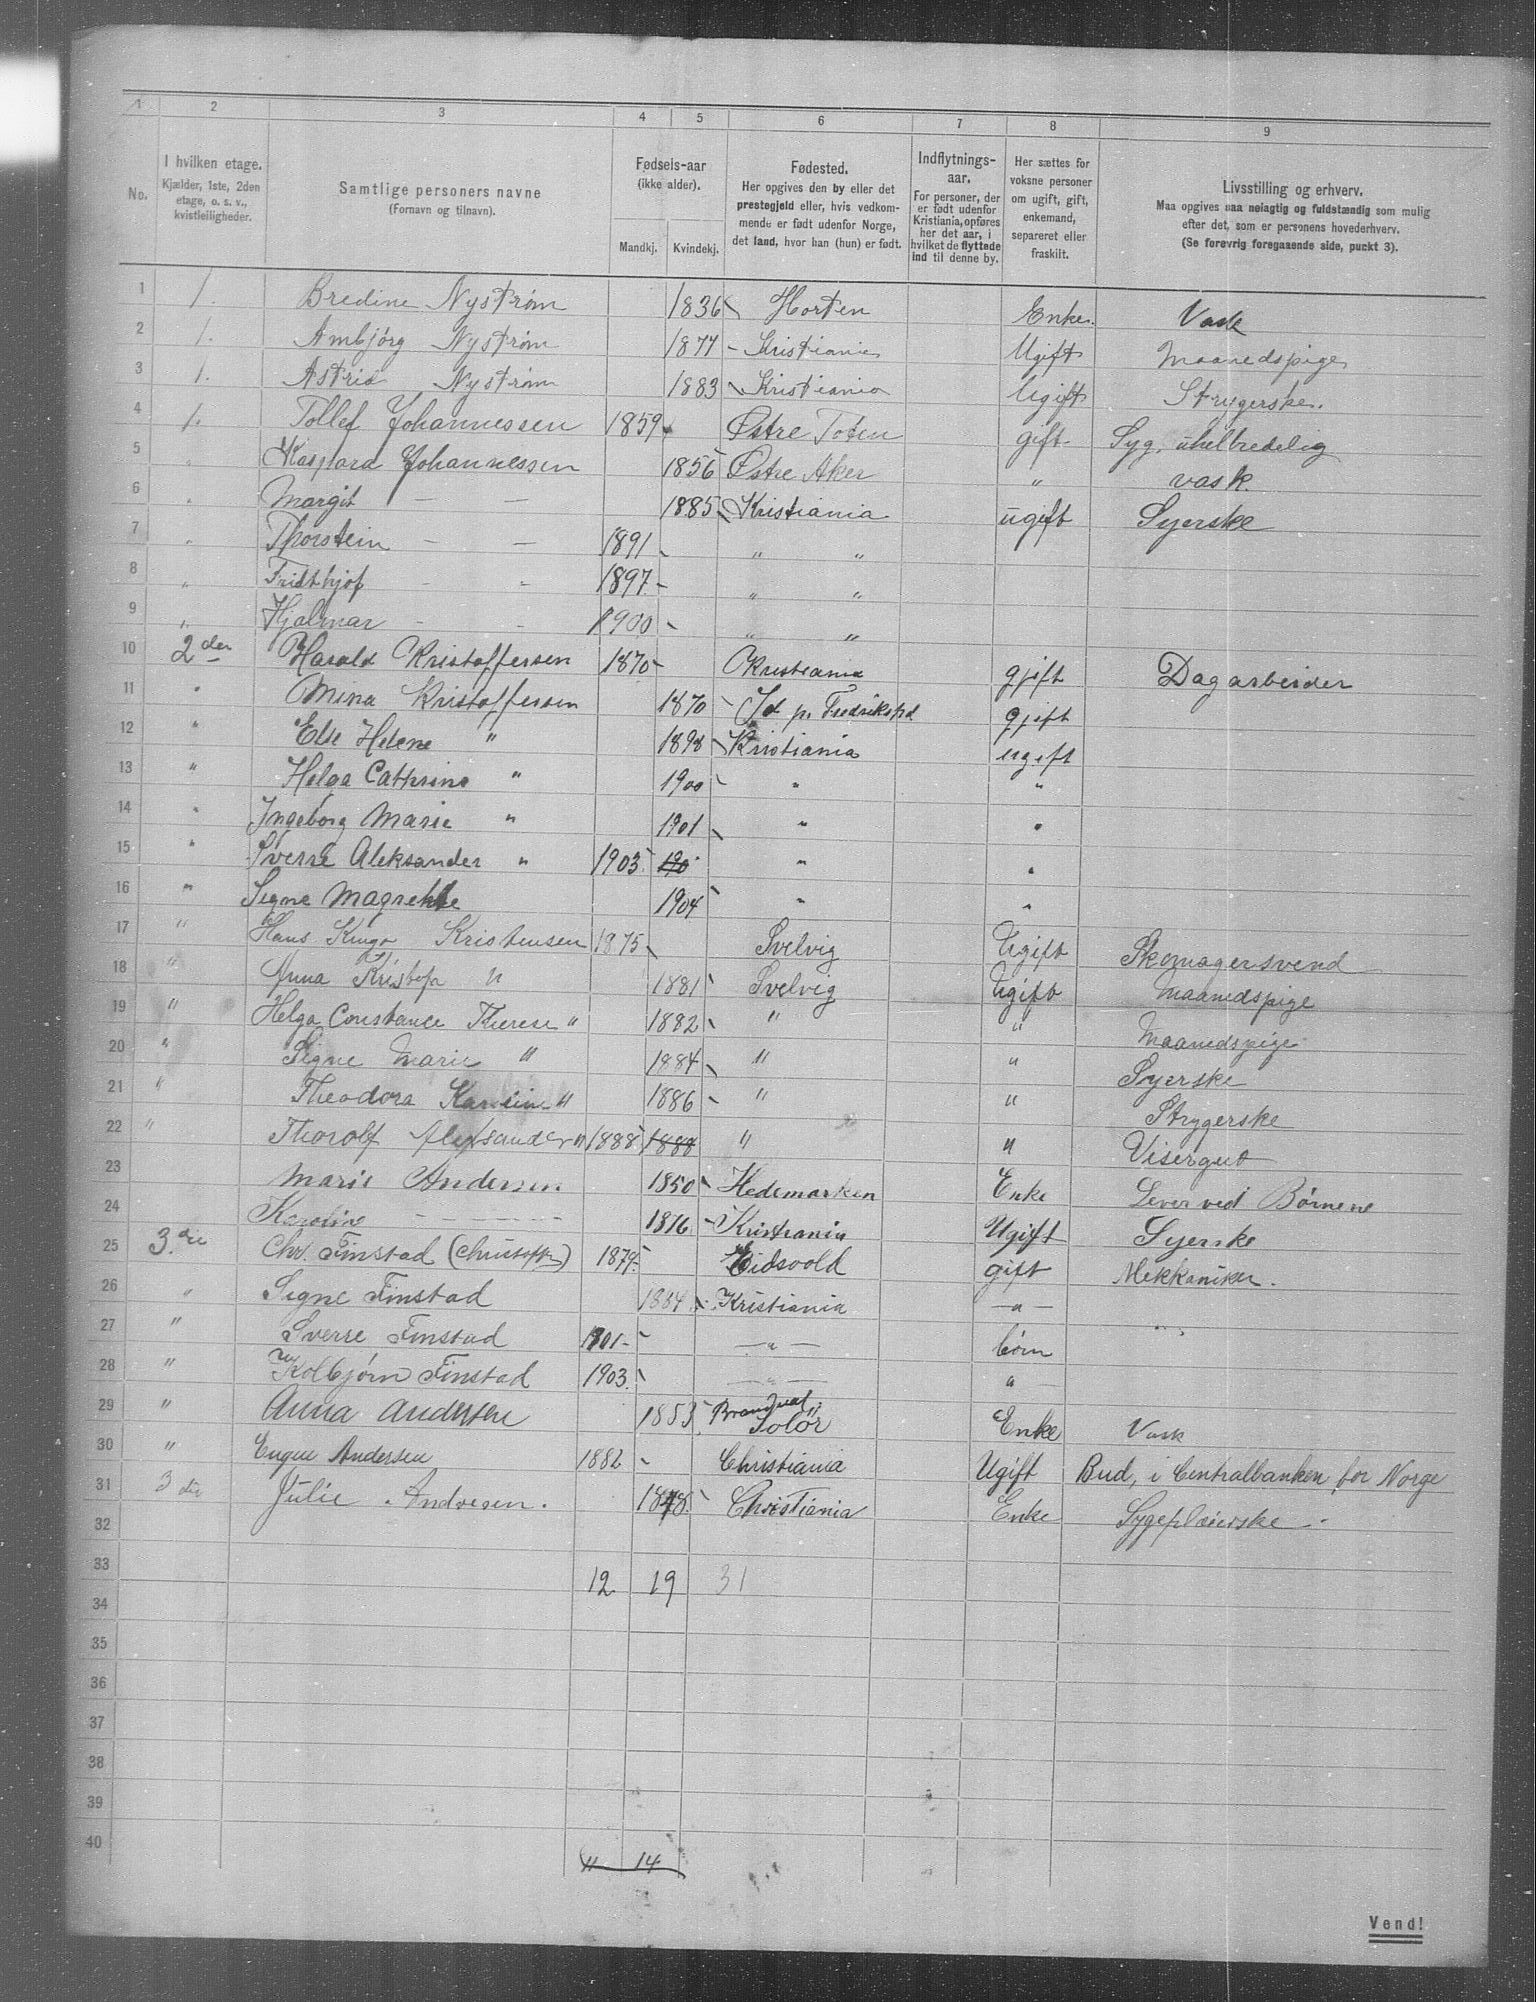 1 2 3 4 5 6 7 8 9
No.
I hvilken etage.
Kjælder, 1ste, 2den
etage, o. s. v.,
kvistleiligheder.
Samtlige personers navne
(Fornavn og tilnavn).
Fødsels-aar
(ikke alder).
Mandkj. Kvindekj.
Fødested.
Her opgives den by eller det
prestegjeld eller, hvis vedkom-
mende er født udenfor Norge,
det land, hvor han (hun) er født.
Indflytnings-
aar.
For personer, der
er født udenfor
Kristiania, opføres
her det aar, i
hvilket de flyttede
ind til denne by.
Her sættes for
voksne personer
om ugift, gift,
enkemand,
separeret eller
fraskilt.
Livsstilling og erhverv.
Maa opgives saa nøiagtig og fuldstændig som mulig
efter det, som er personens hovederhverv.
(Se forøvrig foregaaende side, punkt 3).
1 1. Bredine Nystrøm 1836 Horten Enke. Vask
2 1. Ambjørg Nystrøm 1877 Kristiania Ugift Maanedspige
3 1. Astrid Nystrøm 1883 Kristiania Ugift Strygerske.
4 1. Tollef Johannessen 1859 Østre Toten gift Syg, uhelbredelig
5 Kaspara Johannessen 1856 Østre Aker " vask.
6 Margit — — 1885 Kristiania ugift Syerske
7 " Thorstein — — 1891 " "
8 " Fridthjof — - 1897 " "
9 " Hjalmar - - 1900 " "
10 2den Harald Kristoffersen 1870 Kristiania gjift Dagarbeider
11 " Mina Kristoffersen 1870 Id p. Fredrikshd gjift
12 " Else Helene " 1898 Kristiania ugift
13 " Helga Cathrine " 1900 " "
14 " Ingeborg Marie " 1901 " "
15 " Sverre Aleksander " 1903 190 " "
16 " Signe Magrethe 1904 " "
17 " Hans Kristensen 1875 Svelvig Ugift Skomagersvend
18 " Anna " 1881 Svelvig Ugift Maanedspige
19 " Helga Constance Therese " 1882 " " Maanedspige
20 " Signe Marie " 1884 " " Syerske
21 " Theodora " 1886 " " Strygerske
22 " Thorolf Aleksander " 1888 1888 " " Visergut
23 Marie Andersen 1850 Hedemarken Enke Lever ved Børnene
24 Karoline — — — 1876 Kristiania Ugift Syerske
25 3.die Chr. Finstad (Christoffer) 1879 Eidsvold gift Mekkaniker.
26 " Signe Finstad 1884 Kristiania —"—
27 " Sverre Finstad 1901 —"— børn
28 " Kolbjørn Finstad 1903 —"— "
29 " Anna Andersen 1853 Brandval Solør Enke Vask
30 " Eugen Andersen 1882 Christiania Ugift Bud, i Centralbanken for Norge
31 3die Julie Andresen. 1848 Christiania Enke Sygepleierske
32
33 12 19 31
34
35
36
37
38
39
40
11 14
Vend!